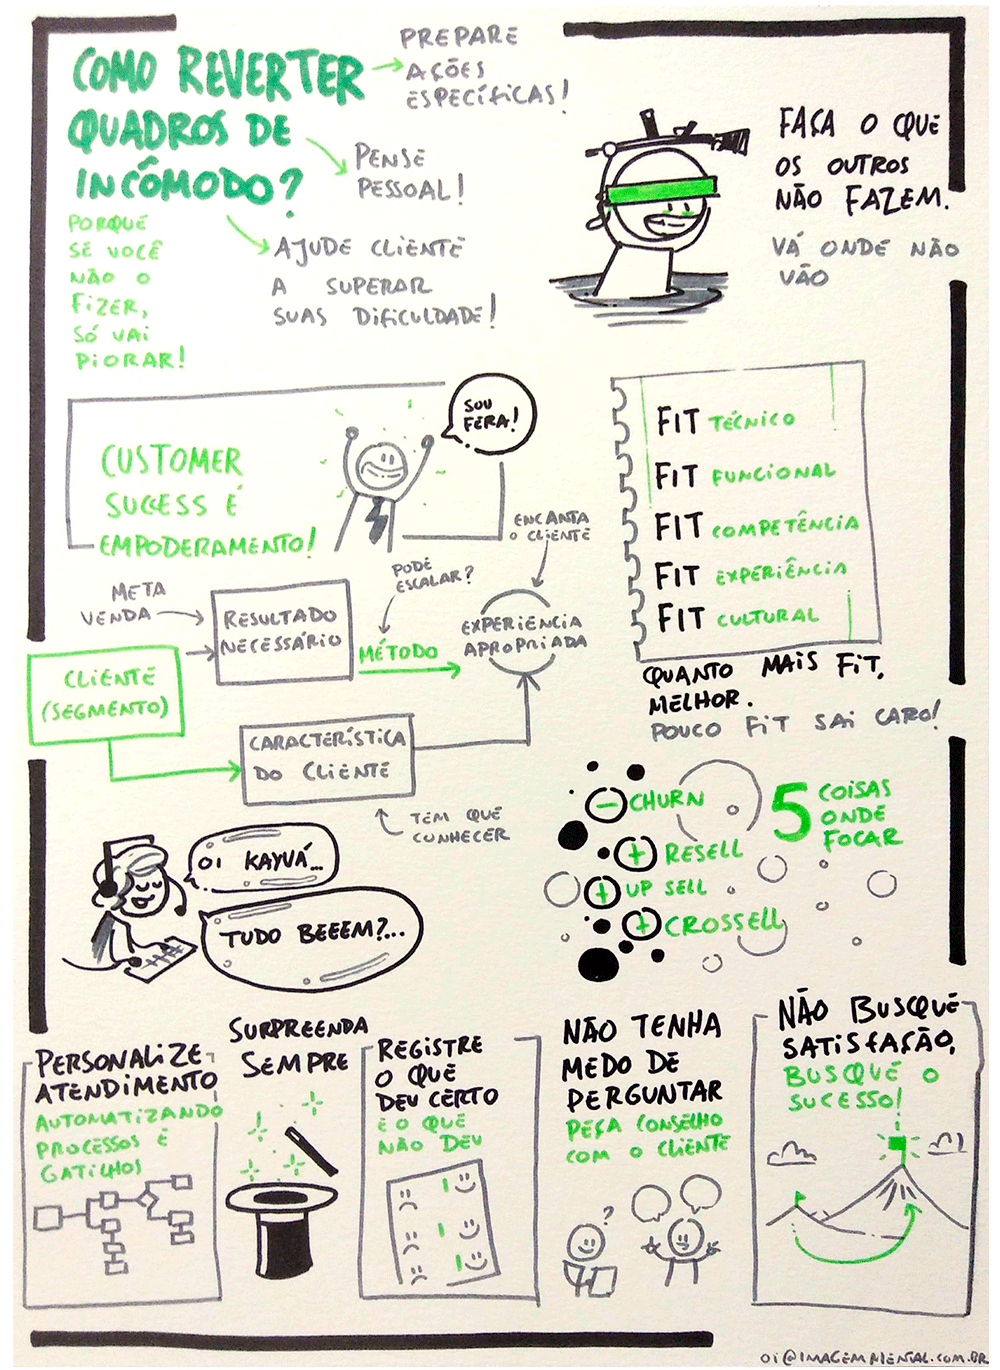 COMO REVERTER
QUADROS DE
INCÔMODO?
PORQUE
SE VOCÊ
NÃO O
FIZER,
SÓ VAI
PIORAR!
PREPARE
AÇÕES
ESPECÍFICAS!
PENSE
PESSOAL!
AJUDE CLIENTE
A SUPERAR
SUAS DIFICULDADE!
FAÇA O QUE
OS OUTROS
NÃO FAZEM.
VÁ ONDE NÃO
VÃO
CUSTOMER
SUCCESS É
EMPODERAMENTO!
SOU
FERA!
FIT TÉCNICO
FIT FUNCIONAL
FIT COMPETÊNCIA
FIT EXPERIÊNCIA
FIT CULTURAL
QUANTO MAIS FIT,
MELHOR.
POUCO FIT SAI CARO!
META
VENDA
RESULTADO
NECESSÁRIO
CLIENTE
(SEGMENTO)
PODE
ESCALAR?
MÉTODO
ENCANTA
O CLIENTE
EXPERIÊNCIA
APROPRIADA
CARACTERÍSTICA
DO CLIENTE
TEM QUE
CONHECER
OI KAYVÁ...
TUDO BEEEM?...
5 COISAS
ONDE
FOCAR
- CHURN
+ RESELL
+ UP SELL
+ CROSSELL
PERSONALIZE
ATENDIMENTO
AUTOMATIZANDO
PROCESSOS E
GATILHOS
SURPREENDA
SEMPRE
REGISTRE
O QUE
DEU CERTO
E O QUE
NÃO DEU
NÃO TENHA
MEDO DE
PERGUNTAR
PEÇA CONSELHO
COM O CLIENTE
?
NÃO BUSQUE
SATISFAÇÃO,
BUSQUE O
SUCESSO!
OI@IMAGEMMENTAL.COM.BR